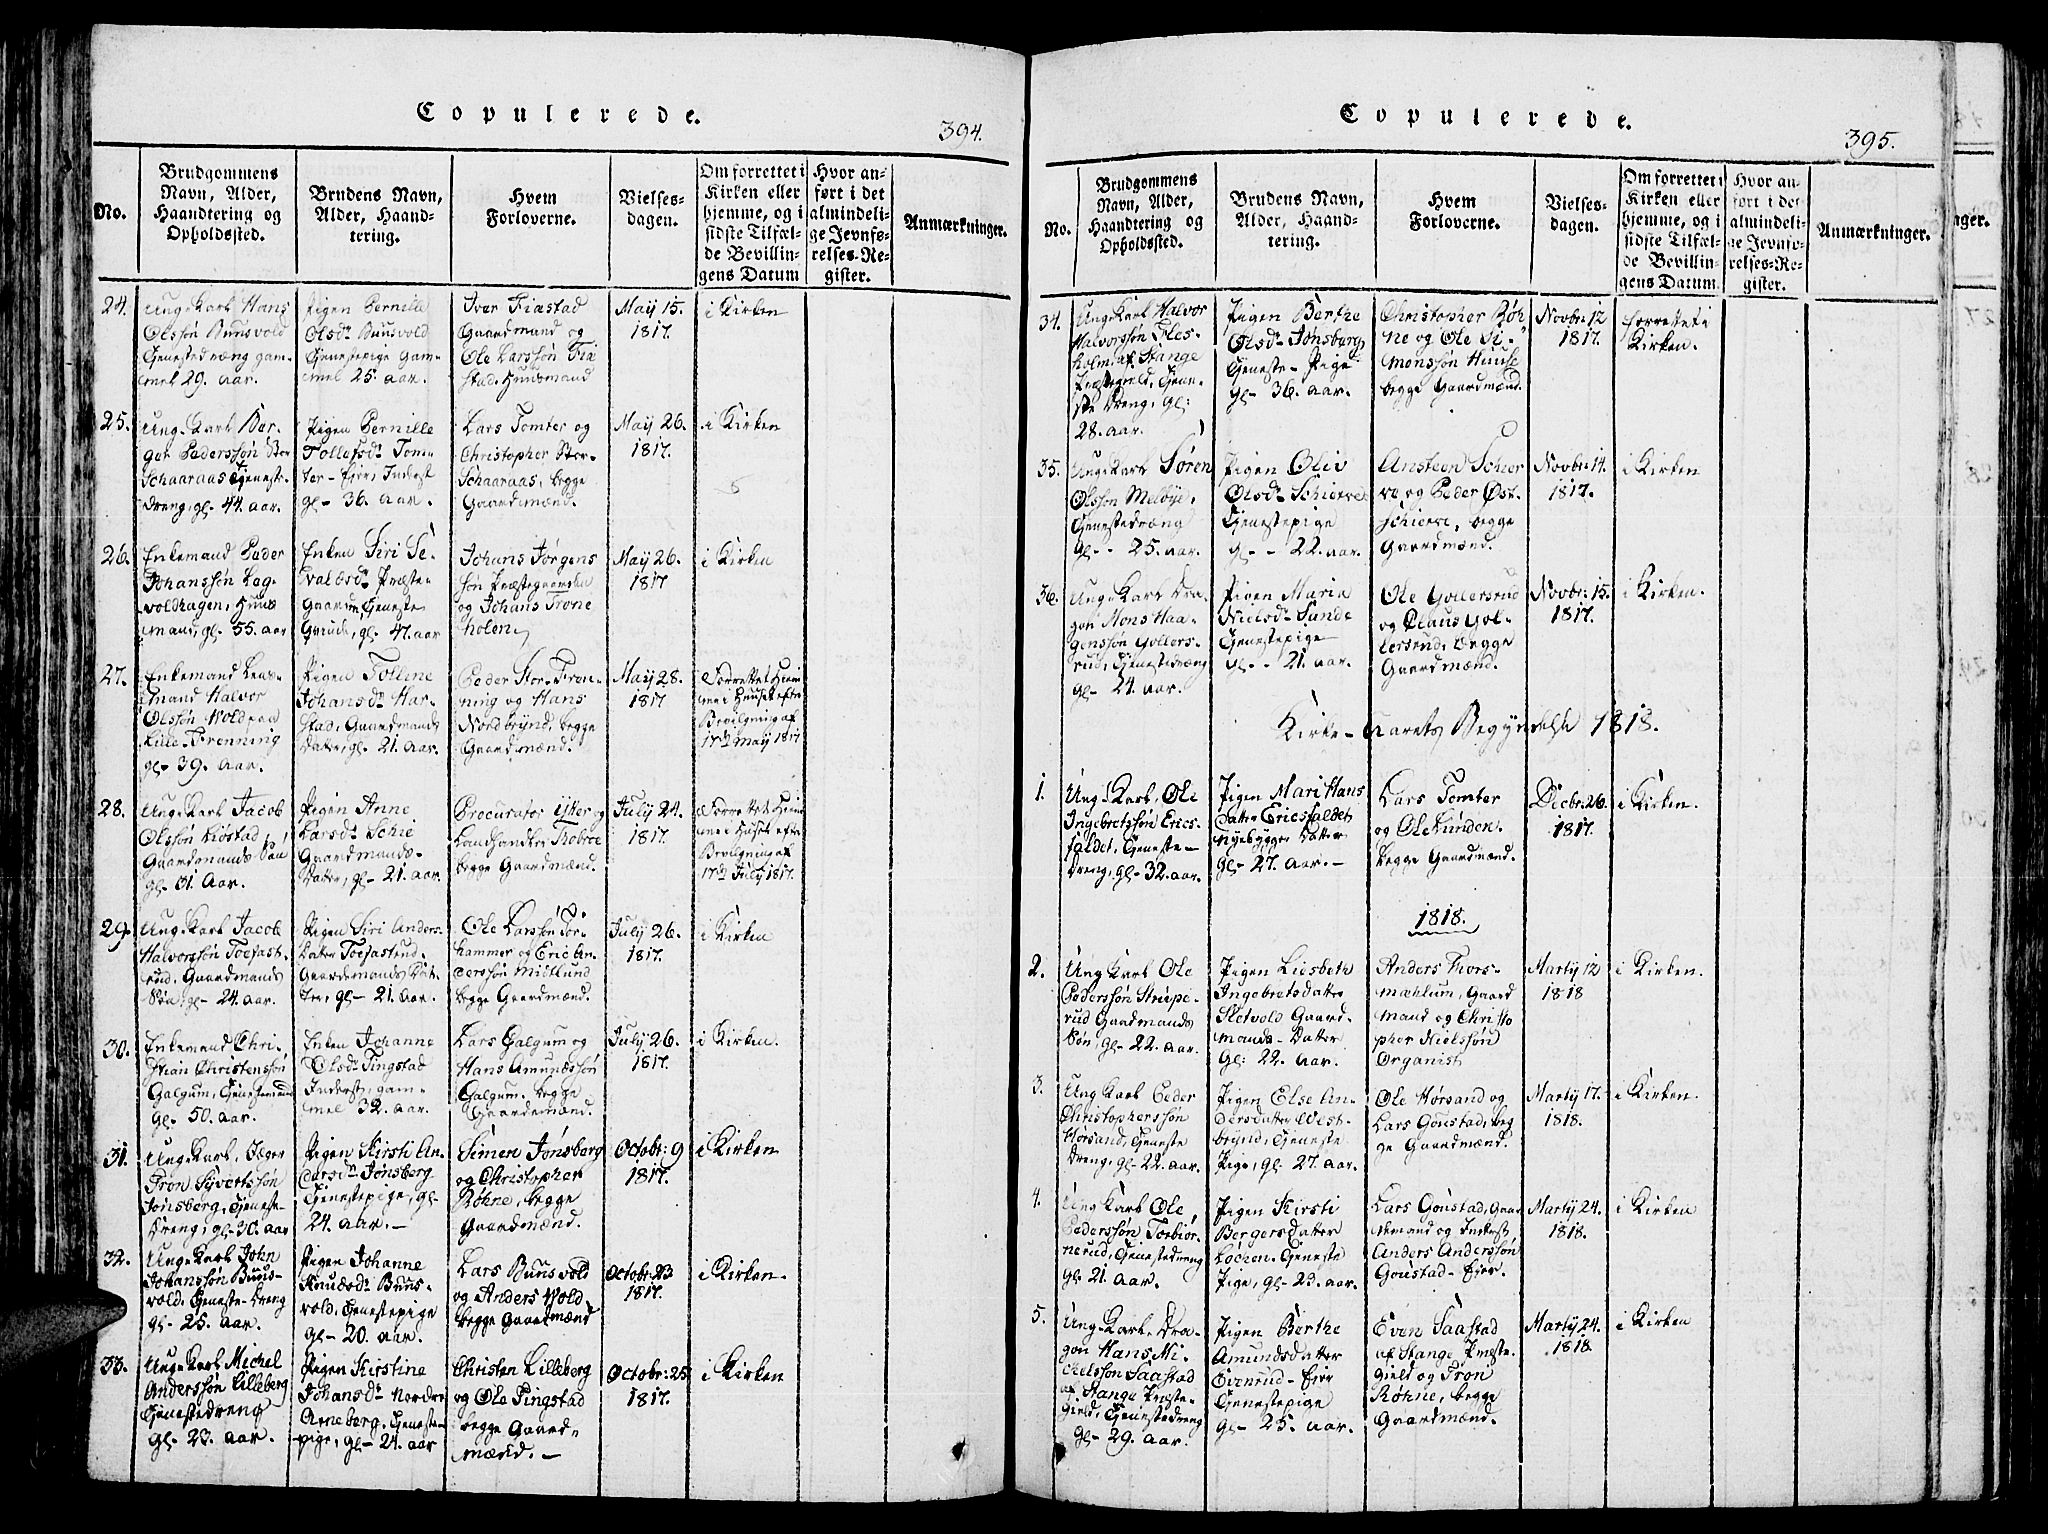 Copulerede.
394.
No.
Brudgommens
Navn, Alder,
Haandtering og
Opholdssted.
Brudens Navn,
Alder, Haand-
tering.
Hvem
Forloverne.
Vielses-
dagen.
Om forrettet i
Kirken eller
hjemme, og i
sidste Tilfæl-
de Bevillin-
gens Datum
Hvor an-
ført i det
almindeli-
ge Jevnfø-
relses-Re-
gister.
Anmærkninger.
24.
Ung-Karl Hans
Olssøn Buusvold
Tjenestedræng gam-
mel 29. aar.
Pigen Pernille
Olsdr Buusvold
Tjenestepige gam-
mel 25. aar.
Iver Fiæstad
Gaardmand og
Ole Larssøn Fiæ
stad. Huusmand
May 15.
1817.
i Kirken
25.
Ung-Karl Bør-
ger Pederssøn Stor
Schaaraas Tjeneste-
dreng, gl- 44. aar.
Pigen Pernille
Tollefsdr Tom-
ter-Eier, Inderst
gl- 36. aar.
Lars Tomter og
Christopher Stor-
Schaaraas, begge
Gaardmænd.
May 26.
1817.
i Kirken
26.
Enkemand Peder
Johanssøn Lag-
voldhagen, Huus
mand, gl. 55. aar
Enken Siri Si-
Præste-
Gaarden, Tjeneste
gl. 47. aar
Johans Jørgens
søn Præstegaarden
og Johans Trone
holen,
May 26.
1817
i Kirken
27.
Enkemand
mand Halvor
Olssøn Vold paa
Lille-Frenning
gl- 39. aar.
Pigen Tolline
Johansdr Har-
stad, Gaardmands
Datter, gl- 21. aar.
Peder Stor-Fron-
ning og Hans
Nordbrynd, begge
Gaardmænd.
May 28.
1817
Forrettet Hiem
me i Huuset efter
Bevilgning af
17de May 1817
28.
Ung-Karl Jacob
Olssøn Liøstad,
Gaardmands Søn
gl- 31. Aar.
Pigen Anne
Larsdr Schie
Gaardmands-
Datter, gl- 21. aar.
Procurator Ytter og
Landhandler Roboe
begge Gaardmænd.
July 24.
1817.
Forrettet Hiem
me i Huset efter
Bevilgning af
17de July 1817.
29.
Ung-Karl Jacob
Halvorssøn Tofast-
rud, Gaardmands
Søn, gl- 24. aar.
Pigen Siri Anders-
Datter Tofastrud
Gaardmands Dat-
ter, gl- 21. aar.
Ole Larssøn Tor-
hammer og Eric An-
derssøn Midtlund
begge Gaardmænd.
July 26.
1817.
i Kirken
30.
Enkemand Chri-
stian Christenssøn
Galgum, Tjenestemand
gl- 50. aar.
Enken Johanne
Olsdr Tingstad
Inderst, gam-
mel 32. aar.
Lars Galgum og
Hans Amundssøn
Galgum. begge
Gaardmænd.
July 26.
1817.
i Kirken.
31.
Ung-Karl, Jæger
Tron Syvertssøn
Jønsberg, Tjeneste-
Dreng, gl- 30. aar
Pigen Kirsti An-
dersdr Jønsberg
Tjenestepige, gl
24. aar.-
Simen Jønsberg
og Christopher
Røhne, begge
Gaardmænd.
Octobr: 9
1817.
i Kirken
32.
Ung-Karl John
Johanssøn Buus-
vold, Tjeneste-Dreng
gl- 25. aar.
Pigen Johanne
Knudsdr Buus-
vold, Tjenestepige
gl- 20. aar.
Lars Buusvold
og Anders Vold
begge Gaardmænd
Octobr: 23
1817.
i Kirken.
33.
Ung-Karl Michel
Anderssøn Lilleberg
Tjenestedreng
gl- 23. aar.
Pigen Kirstine
Johansdr Nordre
Arneberg, Tjeneste-
pige, gl- 24. aar
Christen Lilleberg
og Ole Pingstad
begge Gaard-
mænd.-
Octobr: 25
1817.
i Kirken
Copulerede.
395.
No.
Brudgommens
Navn, Alder,
Haandtering og
Opholdssted.
Brudens Navn,
Alder, Haand-
tering.
Hvem
Forloverne.
Vielses-
dagen.
Om forrettet i
Kirken eller
hjemme, og i
sidste Tilfæl-
de Bevillin-
gens Datum
Hvor an-
ført i det
almindeli-
ge Jevnfø-
relses-Re-
gister.
Anmærkninger.
34.
Ung-Karl Halvor
Halvorssøn Fles-
holm af Stange
Præstegield, Tjene-
ste Dreng, gl:
28. aar.
Pigen Berthe
Olsdr Jønsberg
Tjeneste-Pige
gl- 36. aar.
Christopher Røh-
ne og Ole Si-
monssøn Huuse
begge Gaardmænd.
Novbr: 12
1817.
forrettet i
Kirken.
35.
Ung-Karl Søren
Olssøn Melbye,
Tjenestedræng
gl- - 25. aar.
Pigen Oliv
Olsdr Schierre
Tjenestepige
gl- - 22. aar.
Ansteen Schier
re og Peder Øst-
Schierre, begge
Gaardmænd.
Novbr: 14.
1817.
i Kirken
36.
Ung-Karl Dra-
gon Mons Haa-
genssøn Gollers-
rud, Tjenestedræng
gl- 24. aar.
Pigen Maria
Nielsdr Sande
Tjenestepige
gl- - 21. aar.
Ole Gollersrud
og Claus Gol-
lersrud, begge
Gaardmænd.
Novbr: 15.
1817.
i Kirken.
Kirke-Aarets Begyndelse 1818.
1.
Ung-Karl, Ole
Ingebretssøn Erics-
faldet, Tjeneste-
Dreng, gl- 32. aar.
Pigen Mari Hans
datter Ericsfaldet
Nyebygger Datter
gl- 27. aar.-
Lars Tomter
og Ole Kunden.
begge Gaardmænd.
Decbr: 26.
1817.
i Kirken.
1818.
2.
Ung Karl Ole
Pederssøn Strupe-
rud Gaardmands
Søn, gl- 22. aar.
Pigen Liesbeth
Ingebretsdatter
Sletvold Gaard-
mands-Datter
gl: 22. aar.
Anders Thors-
mæhlum, Gaard
mand og Christo
pher Nielssøn
Organist
Marty 12
1818
i Kirken.
3.
Ung Karl Peder
Christopherssøn
Hørsand, Tjeneste
Dreng, gl- 22. aar.
Pigen Else An-
dersdatter West-
brynd, Tjeneste
Pige, gl- 27. aar.
Ole Hørsand og
Lars Goustad, beg
ge Gaardmænd.
Marty 17.
1818.
i Kirken.
4.
Ung Karl Ole
Pederssøn Torbiør-
nerud, Tjenestedreng
gl- 21. aar.
Pigen Kirsti
Bergersdatter
Løchen. Tjeneste
Pige, gl- 23. aar.
Lars Goustad, Gaar
demand og Inderst
Anders Anderssøn
Goustad-Eier.
Marty 24.
1818.
i Kirken
5.
Ung-Karl-Dra-
gon Hans Mi-
chelssøn Saastad
af Stange Præste-
gield, Tjenestedreng
gl- 29. aar.
Pigen Berthe
Amundsdatter
Evenrud-Eier
Tjenestepige
gl- 25. aar.
Even Saastad
af Stange Præste-
gield og Tron
Røhne, begge
Gaardmænd.
Marty 24.
1818.
i Kirken